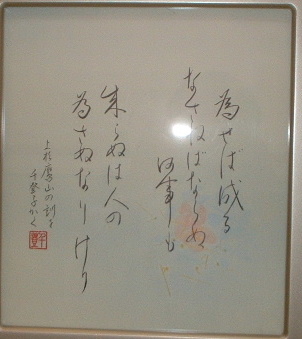 為せば成る
なさねばならぬ
何事も
成らぬは人の
為さぬなりけり
上杉鷹山の訓を
千登子かく